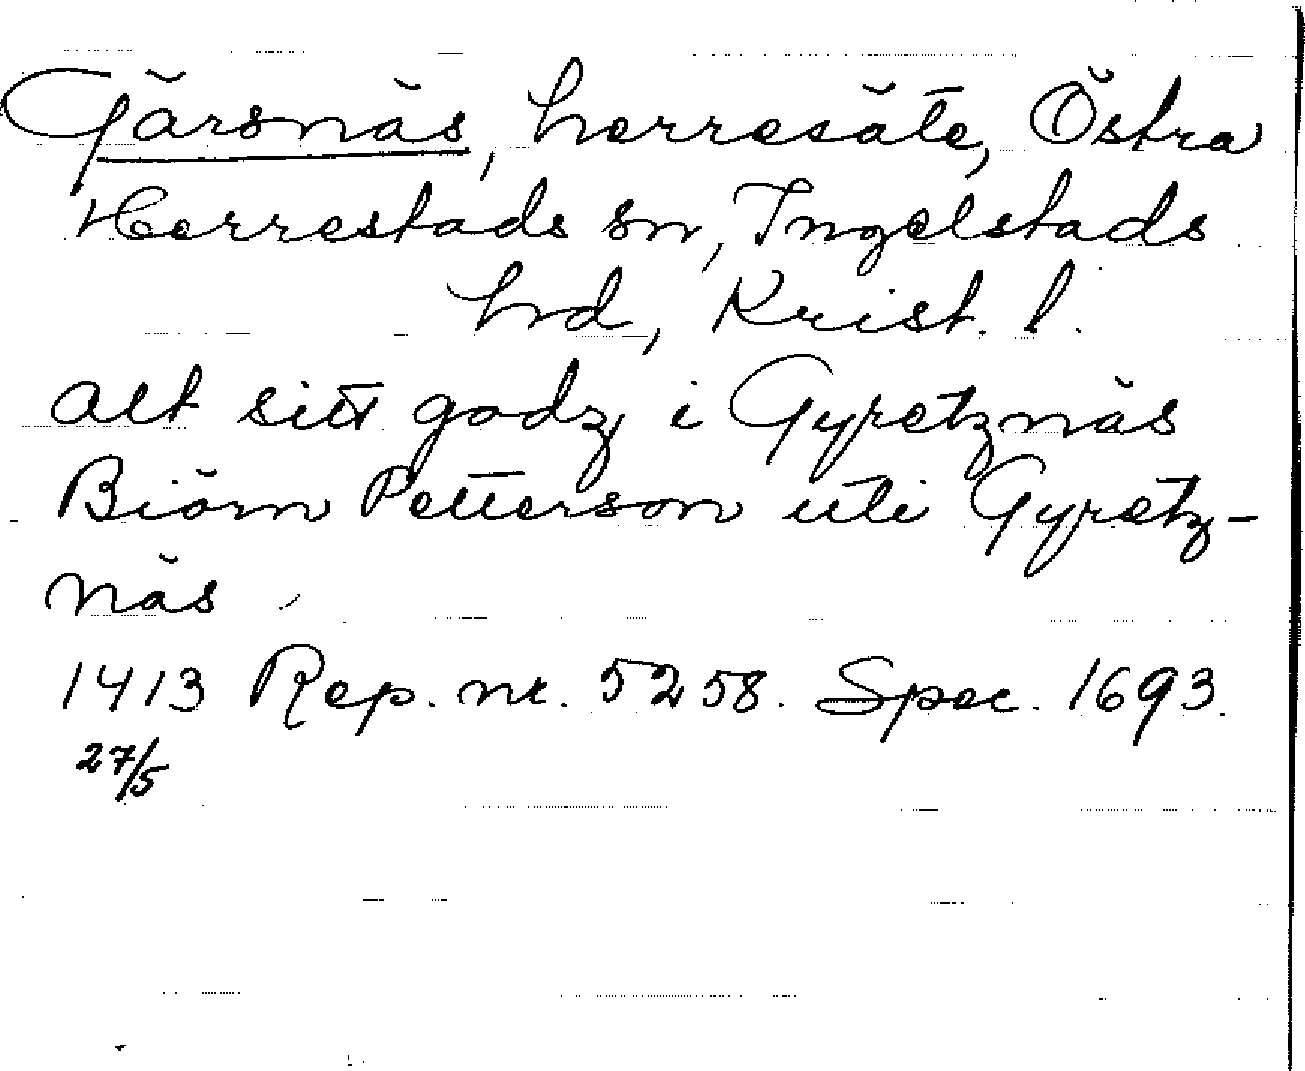 Gärsnäs, herresäte, Östra
Herrestads sn, Ingelstads
hd, Krist. l.
alt sitt godz i Gyretznäs
Biörn Petterson uti Gyretz-
näs
1413 Rep. nr. 5258. Spec. 1693.
27/5